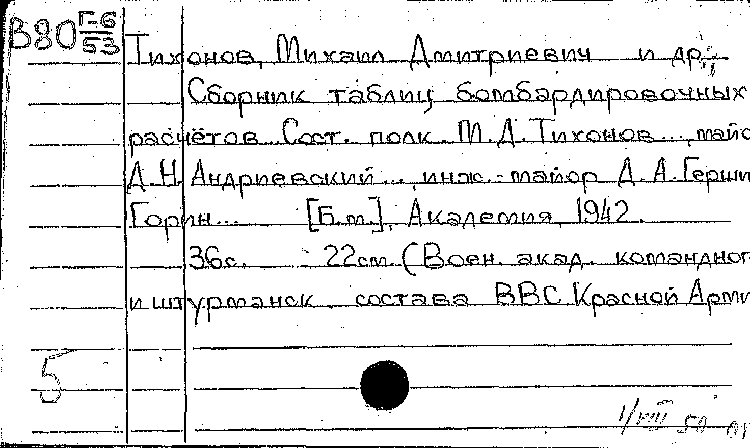 В80 Г-6/53
Тихонов, Михаил Дмитриевич и др.
Сборник таблиц бомбардировочных
расчётов. Сост. полк. М. Д. Тихонов..., майо
Д. Н. Андриевский..., инж.-майор Д. А. Герши
Горин... [Б.м.], Академия, 1942.
36с. 22см. (Воен. акад. командног
и штурманск. состава ВВС Красной Арми
5
1/VIII 50